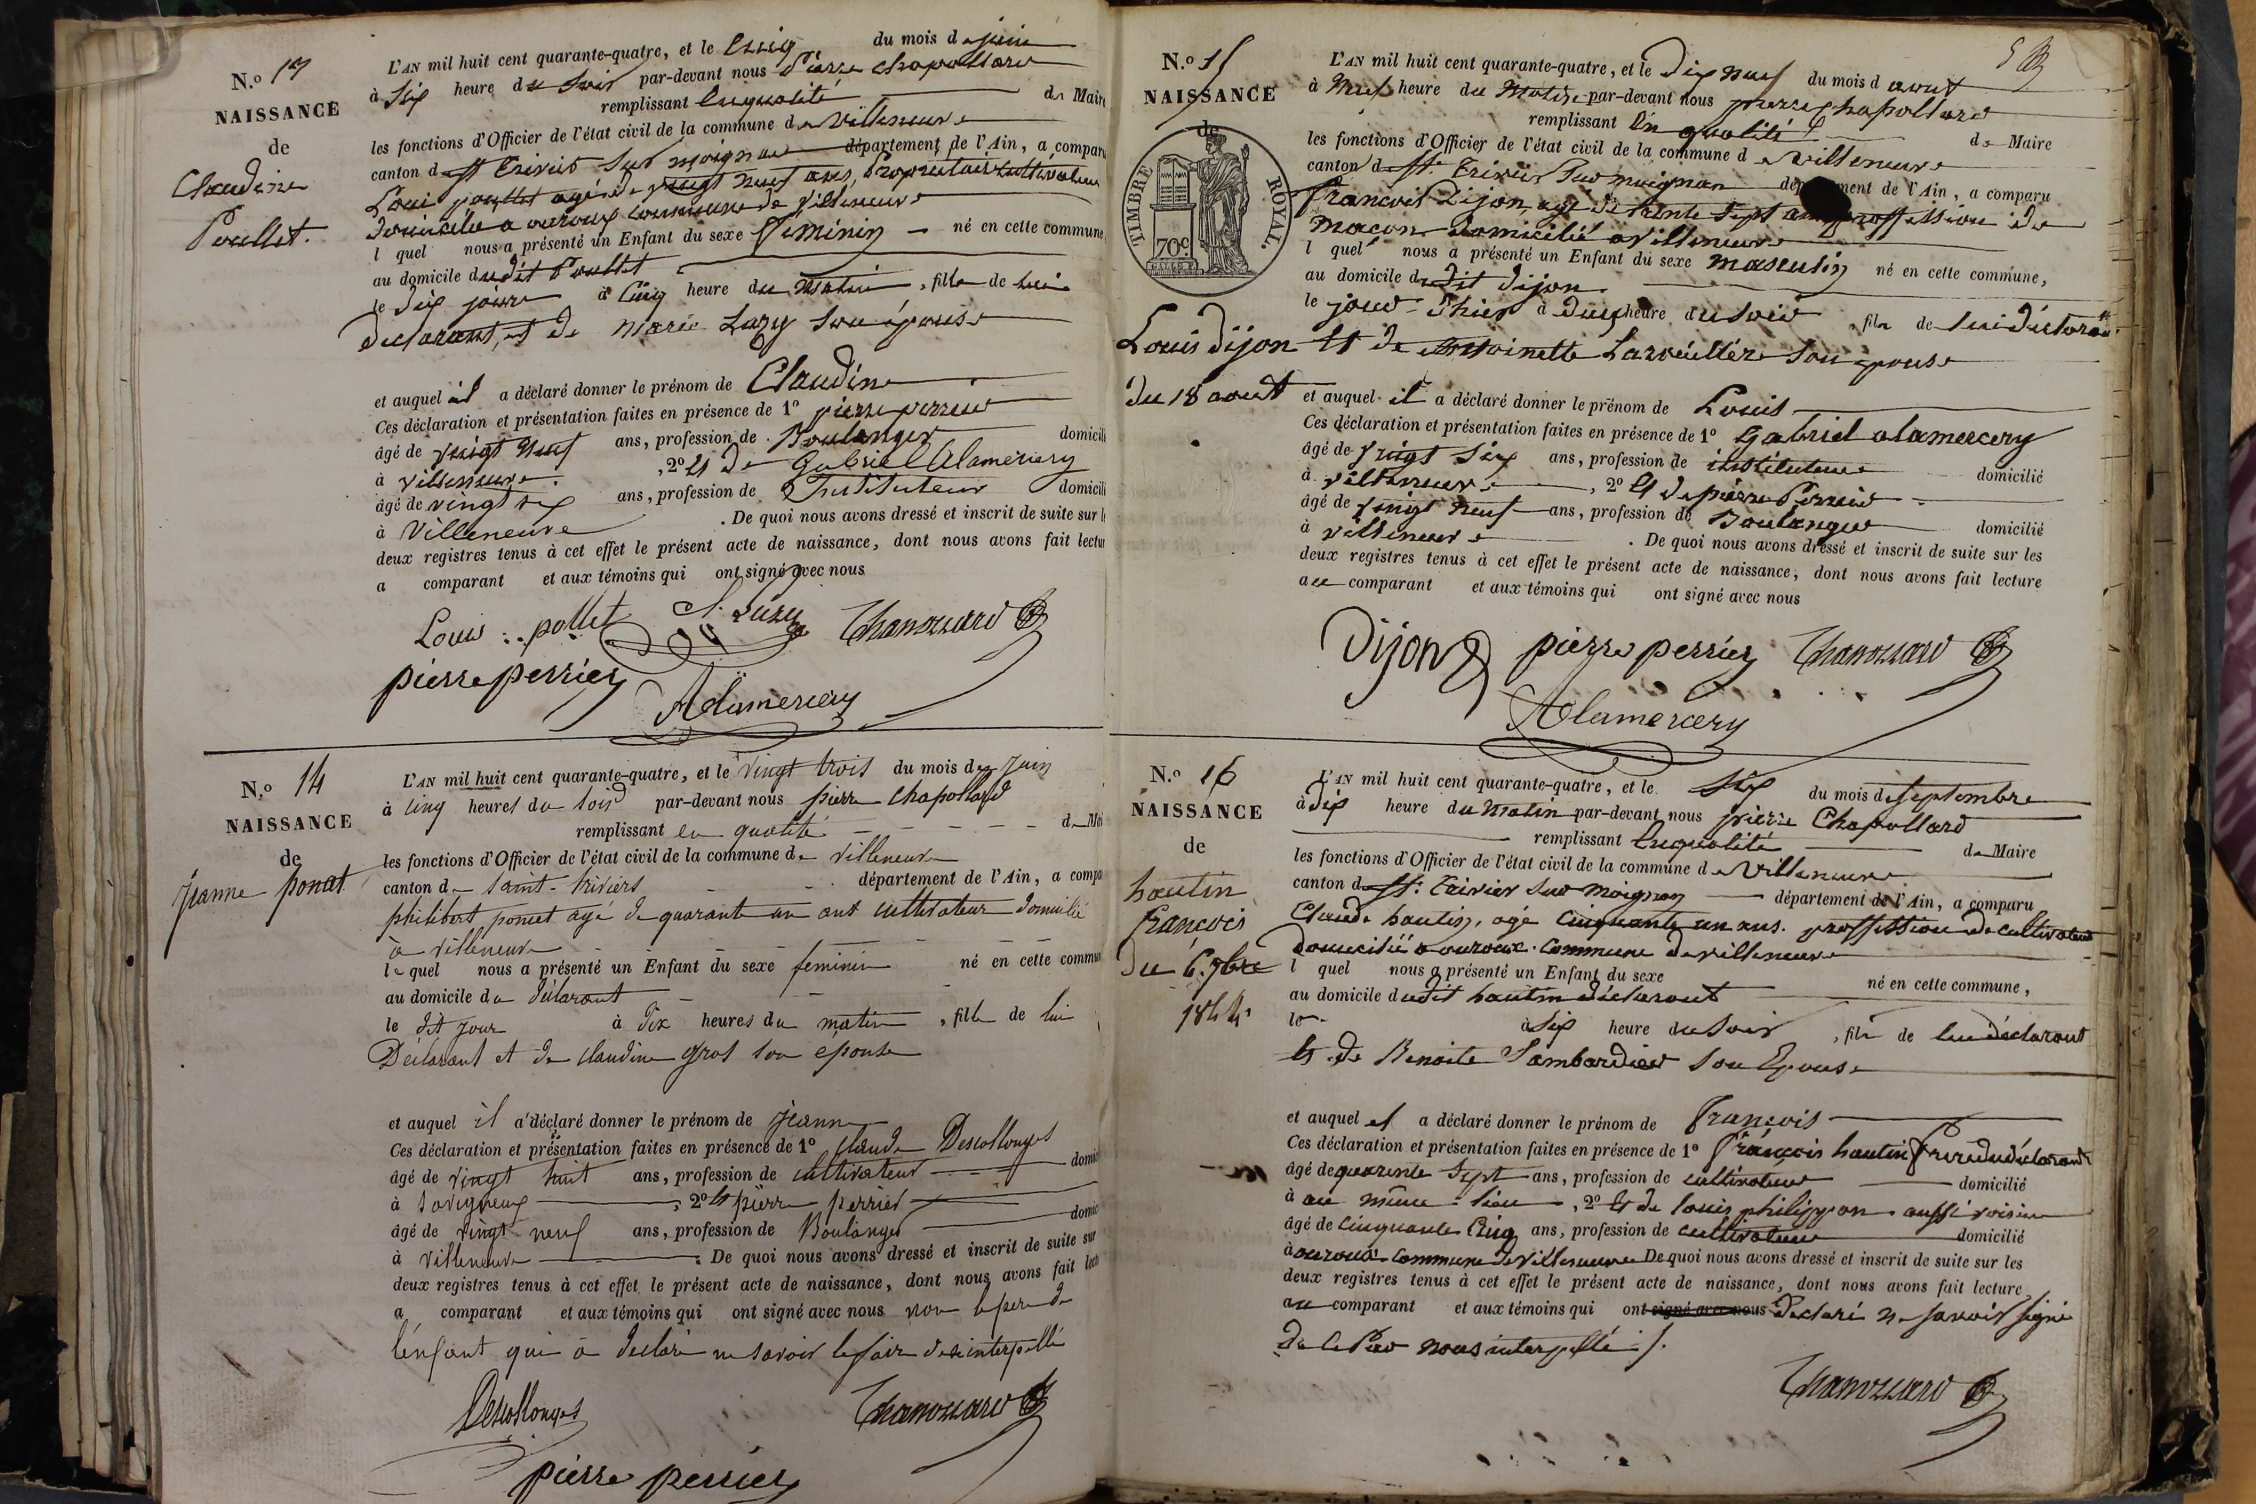 N.o 13
NAISSANCE
de
Claudine
Poullet.
L'AN mil huit cent quarante-quatre, et le du mois de juin
à Six heure du Soir par-devant nous Pierre Chapollard
remplissant Enqualité de Maire
les fonctions d'Officier de l'état civil de la commune de Villeneuve
canton d St Trivier Sur moignan département de l'Ain, a comparu
Loui poullet agé de vingt neuf ans, Propriétaire cultivateur
Domicilié a ouroux commune de Villeneuve
l quel nous a présenté un Enfant du sexe Féminin né en cette commune
au domicile dudit Poullet
le dix jour à Cinq heure du matin, fille de lui
declarant, et de Marie Luzy Son épouse
et auquel il a déclaré donner le prénom de Claudine
Ces déclaration et présentation faites en présence de 1o pierre perrier
âgé de vingt neuf ans, profession de Boulanger domicili
à villeneuve, 2o Et de Gabriel Alamercery
âgé de vingt six ans, profession de Instituteur domicili
à Villeneuve. De quoi nous avons dressé et inscrit de suite sur l
deux registres tenus à cet effet le présent acte de naissance, dont nous avons fait lectur
a comparant et aux témoins qui ont signé avec nous
Louis pollet Luzy Chapollard
pierre perrier
Alamercery
N.o 14
NAISSANCE
de
Jeanne ponat
L'AN mil huit cent quarante-quatre, et le vingt trois du mois de Juin
à cinq heures du soir par-devant nous pierre chapollard
remplissant en qualité de Mai
les fonctions d'Officier de l'état civil de la commune de villeneuve
canton de saint-triviers département de l'Ain, a compa
philibert poncet agé de quarante un ans cultivateur domicilié
à villeneuve
le quel nous a présenté un Enfant du sexe feminin né en cette commun
au domicile du déclarant
le dit jour à dix heures du matin, fille de lui
Déclarant et de claudine gros son épouse
et auquel il a déclaré donner le prénom de jeanne
Ces déclaration et présentation faites en présence de 1o Claude Descollonges
âgé de vingt huit ans, profession de cultivateur domici
à Savigneux, 2o Et pierre perrier
âgé de vingt neuf ans, profession de Boulanger domici
à villeneuve. De quoi nous avons dressé et inscrit de suite sur
deux registres tenus à cet effet le présent acte de naissance, dont nous avons fait lectu
a comparant et aux témoins qui ont signé avec nous non le pere de
l'enfant qui a declaré ne savoir le faire de ce interpellé
Descollonges Chapollard
pierre perrier
N.o 15
NAISSANCE
de
TIMBRE ROYAL.
70c
Louis dijon
du 18 aout
L'AN mil huit cent quarante-quatre, et le Dix neuf du mois d aout
à Neuf heure du Matin par-devant nous pierre Chapollard
remplissant En qualité de Maire
les fonctions d'Officier de l'état civil de la commune de villeneuve
canton de St. Trivier Sur moignan département de l'Ain, a comparu
francois Dijon, agé de trente Sept ans, proffession de
macon domicilié a Villeneuve
l quel nous a présenté un Enfant du sexe masculin né en cette commune,
au domicile dudit dijon
le jour d'hier à heure du Soir, fils de lui déclarant
Et de Antoinette Larveillère Son epouse
et auquel il a déclaré donner le prénom de Louis
Ces déclaration et présentation faites en présence de 1o Gabriel alamercery
âgé de vingt Six ans, profession de instituteur domicilié
à villeneuve, 2o Et de pierre Perrier
âgé de vingt neuf ans, profession de Boulanger domicilié
à villeneuve. De quoi nous avons dressé et inscrit de suite sur les
deux registres tenus à cet effet le présent acte de naissance, dont nous avons fait lecture
au comparant et aux témoins qui ont signé avec nous
Dijon pierre perrier Chapollard
Alamercery
N.o 16
NAISSANCE
de
hautin
françois
du 6. 7bre
1844
L'AN mil huit cent quarante-quatre, et le Six du mois de Septembre
à dix heure du Matin par-devant nous pierre Chapollard
remplissant Enqualité de Maire
les fonctions d'Officier de l'état civil de la commune de Villeneuve
canton de St. Trivier Sur Moignan département de l'Ain, a comparu
Claude hautin, agé Cinquante un ans. proffession de cultivateur
domicilié a ouroux. Commune de villeneuve
l quel nous a présenté un Enfant du sexe né en cette commune,
au domicile dudit hautin déclarant
le à Six heure du Soir, fils de lui déclarant
Et de Benoite Lambardier Son Epouse
et auquel il a déclaré donner le prénom de François
Ces déclaration et présentation faites en présence de 1o françois hautin frere du déclarant
âgé de quarente Sept ans, profession de cultivateur domicilié
à au même lieu, 2o Et de louis philippon aussi voisin
âgé de Cinquante Cinq ans, profession de cultivateur domicilié
à ouroux Commune de Villeneuve De quoi nous avons dressé et inscrit de suite sur les
deux registres tenus à cet effet le présent acte de naissance, dont nous avons fait lecture
au comparant et aux témoins qui ont signé avec nous declaré ne savoir signé
de ce Par nous interpellé
Chapollard